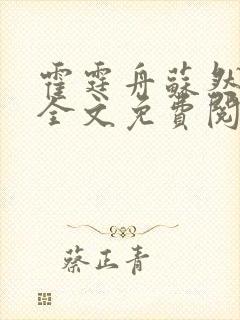 霍霆舟蘇然
全文免費閱
蔡正青